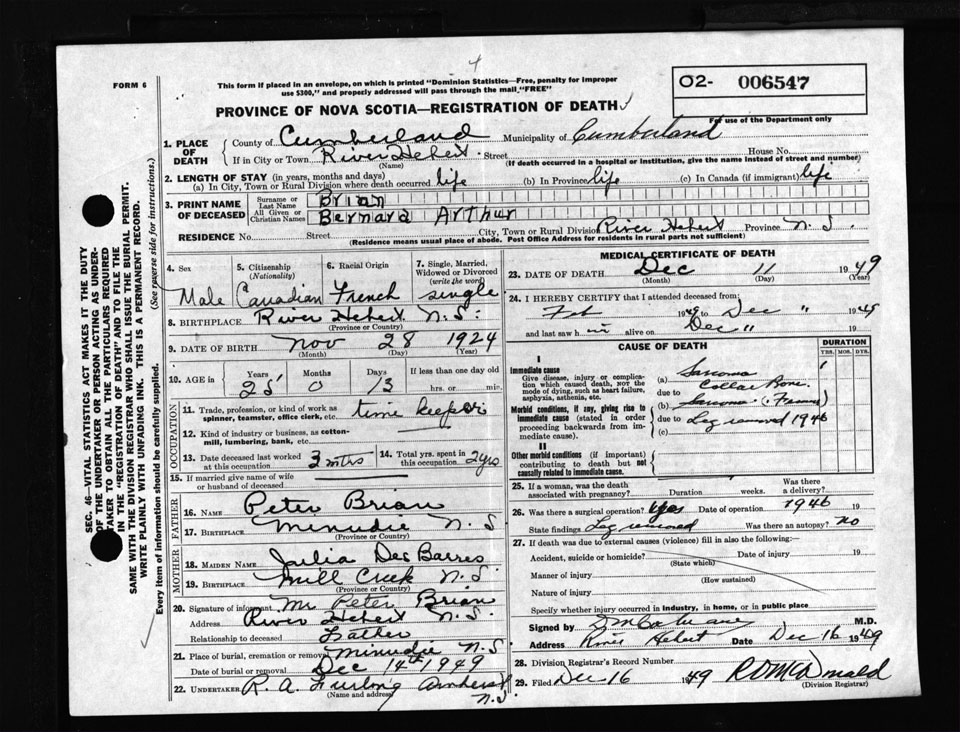 4
FORM 6
This form if placed in an envelope, on which is printed "Dominion Statistics—Free, penalty for improper
use $300," and properly addressed will pass through the mail "FREE"
O2- 006547
PROVINCE OF NOVA SCOTIA—REGISTRATION OF DEATH
For use of the Department only
1. PLACE OF DEATH County of Cumberland Municipality of Cumberland
If in City or Town River Hebert Street House No.
(Name) (If death occurred in a hospital or institution, give the name instead of street and number)
2. LENGTH OF STAY (in years, months and days)
(a) In City, Town or Rural Division where death occurred life (b) In Province life (c) In Canada (if immigrant) life
3. PRINT NAME OF DECEASED Surname or Last Name Brian
All Given or Christian Names Bernard Arthur
RESIDENCE No. Street City, Town or Rural Division River Hebert Province N.S.
(Residence means usual place of abode. Post Office Address for residents in rural parts not sufficient)
4. Sex 5. Citizenship (Nationality) 6. Racial Origin 7. Single, Married, Widowed or Divorced (write the word)
Male Canadian French single
8. BIRTHPLACE River Hebert N.S.
(Province or Country)
9. DATE OF BIRTH Nov 28 1924
(Month) (Day) (Year)
10. AGE in Years Months Days If less than one day old
25 0 13 hrs. or min.
OCCUPATION
11. Trade, profession, or kind of work as spinner, teamster, office clerk, etc. time keeper
12. Kind of industry or business, as cotton-mill, lumbering, bank, etc.
13. Date deceased last worked at this occupation 3 mths 14. Total yrs. spent in this occupation 2 yrs
15. If married give name of wife or husband of deceased
FATHER
16. NAME Peter Brian
17. BIRTHPLACE Minudie N.S
(Province or Country)
MOTHER
18. MAIDEN NAME Julia Des Barres
19. BIRTHPLACE Mill Creek N.S.
(Province or Country)
20. Signature of informant Mr Peter Brian
Address River Hebert N.S.
Relationship to deceased Father
21. Place of burial, cremation or removal Minudie N.S
Date of burial or removal Dec 14th 1949
22. UNDERTAKER R. A. Furlong Amherst
(Name and address) N.S
MEDICAL CERTIFICATE OF DEATH
23. DATE OF DEATH Dec 11 1949
(Month) (Day) (Year)
24. I HEREBY CERTIFY that I attended deceased from:
Feb 1949 to Dec " 1949
and last saw h im alive on Dec " 19
CAUSE OF DEATH
DURATION
YRS. MOS. DYS.
I
Immediate cause
Give disease, injury or complication which caused death, not the mode of dying, such as heart failure, asphyxia, asthenia, etc.
(a) Sarcoma
Collar Bone
due to
(b) Sarcoma
Morbid conditions, if any, giving rise to immediate cause (stated in order proceeding backwards from immediate cause).
due to Leg removed 1946
(c)
II
Other morbid conditions (if important) contributing to death but not causally related to immediate cause.
25. If a woman, was the death associated with pregnancy? Duration weeks. Was there a delivery?
26. Was there a surgical operation? Yes Date of operation 1946 19
State findings Leg removed Was there an autopsy? no
27. If death was due to external causes (violence) fill in also the following:
Accident, suicide or homicide? Date of injury 19
(State which)
Manner of injury
(How sustained)
Nature of injury
Specify whether injury occurred in industry, in home, or in public place
Signed by M.D.
Address River Hebert Date Dec 16 1949
28. Division Registrar's Record Number
29. Filed Dec 16 1949 R D McDonald
(Division Registrar)
SEC. 46—VITAL STATISTICS ACT MAKES IT THE DUTY
OF THE UNDERTAKER OR PERSON ACTING AS UNDER-
TAKER TO OBTAIN ALL THE PARTICULARS REQUIRED
IN THE "REGISTRATION OF DEATH" AND TO FILE THE
SAME WITH THE DIVISION REGISTRAR WHO SHALL ISSUE THE BURIAL PERMIT.
WRITE PLAINLY WITH UNFADING INK. THIS IS A PERMANENT RECORD.
Every item of information should be carefully supplied. (See reverse side for instructions.)